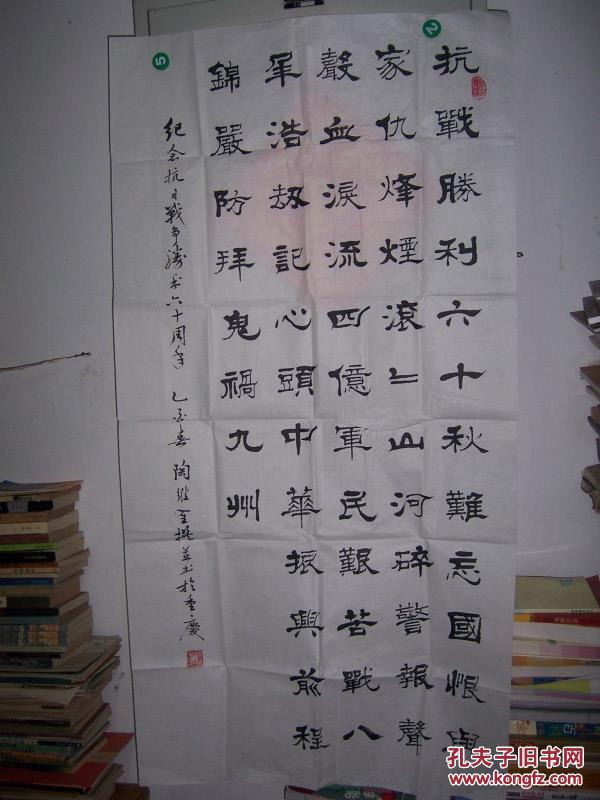 2
抗戰勝利六十秋難忘國恨與
家仇烽煙滾〻山河碎警報聲
聲血淚流四億軍民艱苦戰八
年浩劫記心頭中華振興前程
錦嚴防拜鬼禍九州
5
纪念抗日戰争勝利六十周年 乙酉春 陶維撰並书於重慶
孔夫子旧书网
www.kongfz.com